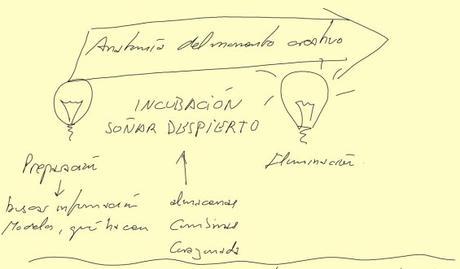 Anatomía del momento creativo
INCUBACIÓN
SOÑAR DESPIERTO
Preparación
Iluminación.
buscar información
Modelos, qué hacen
almacenar
Combinar